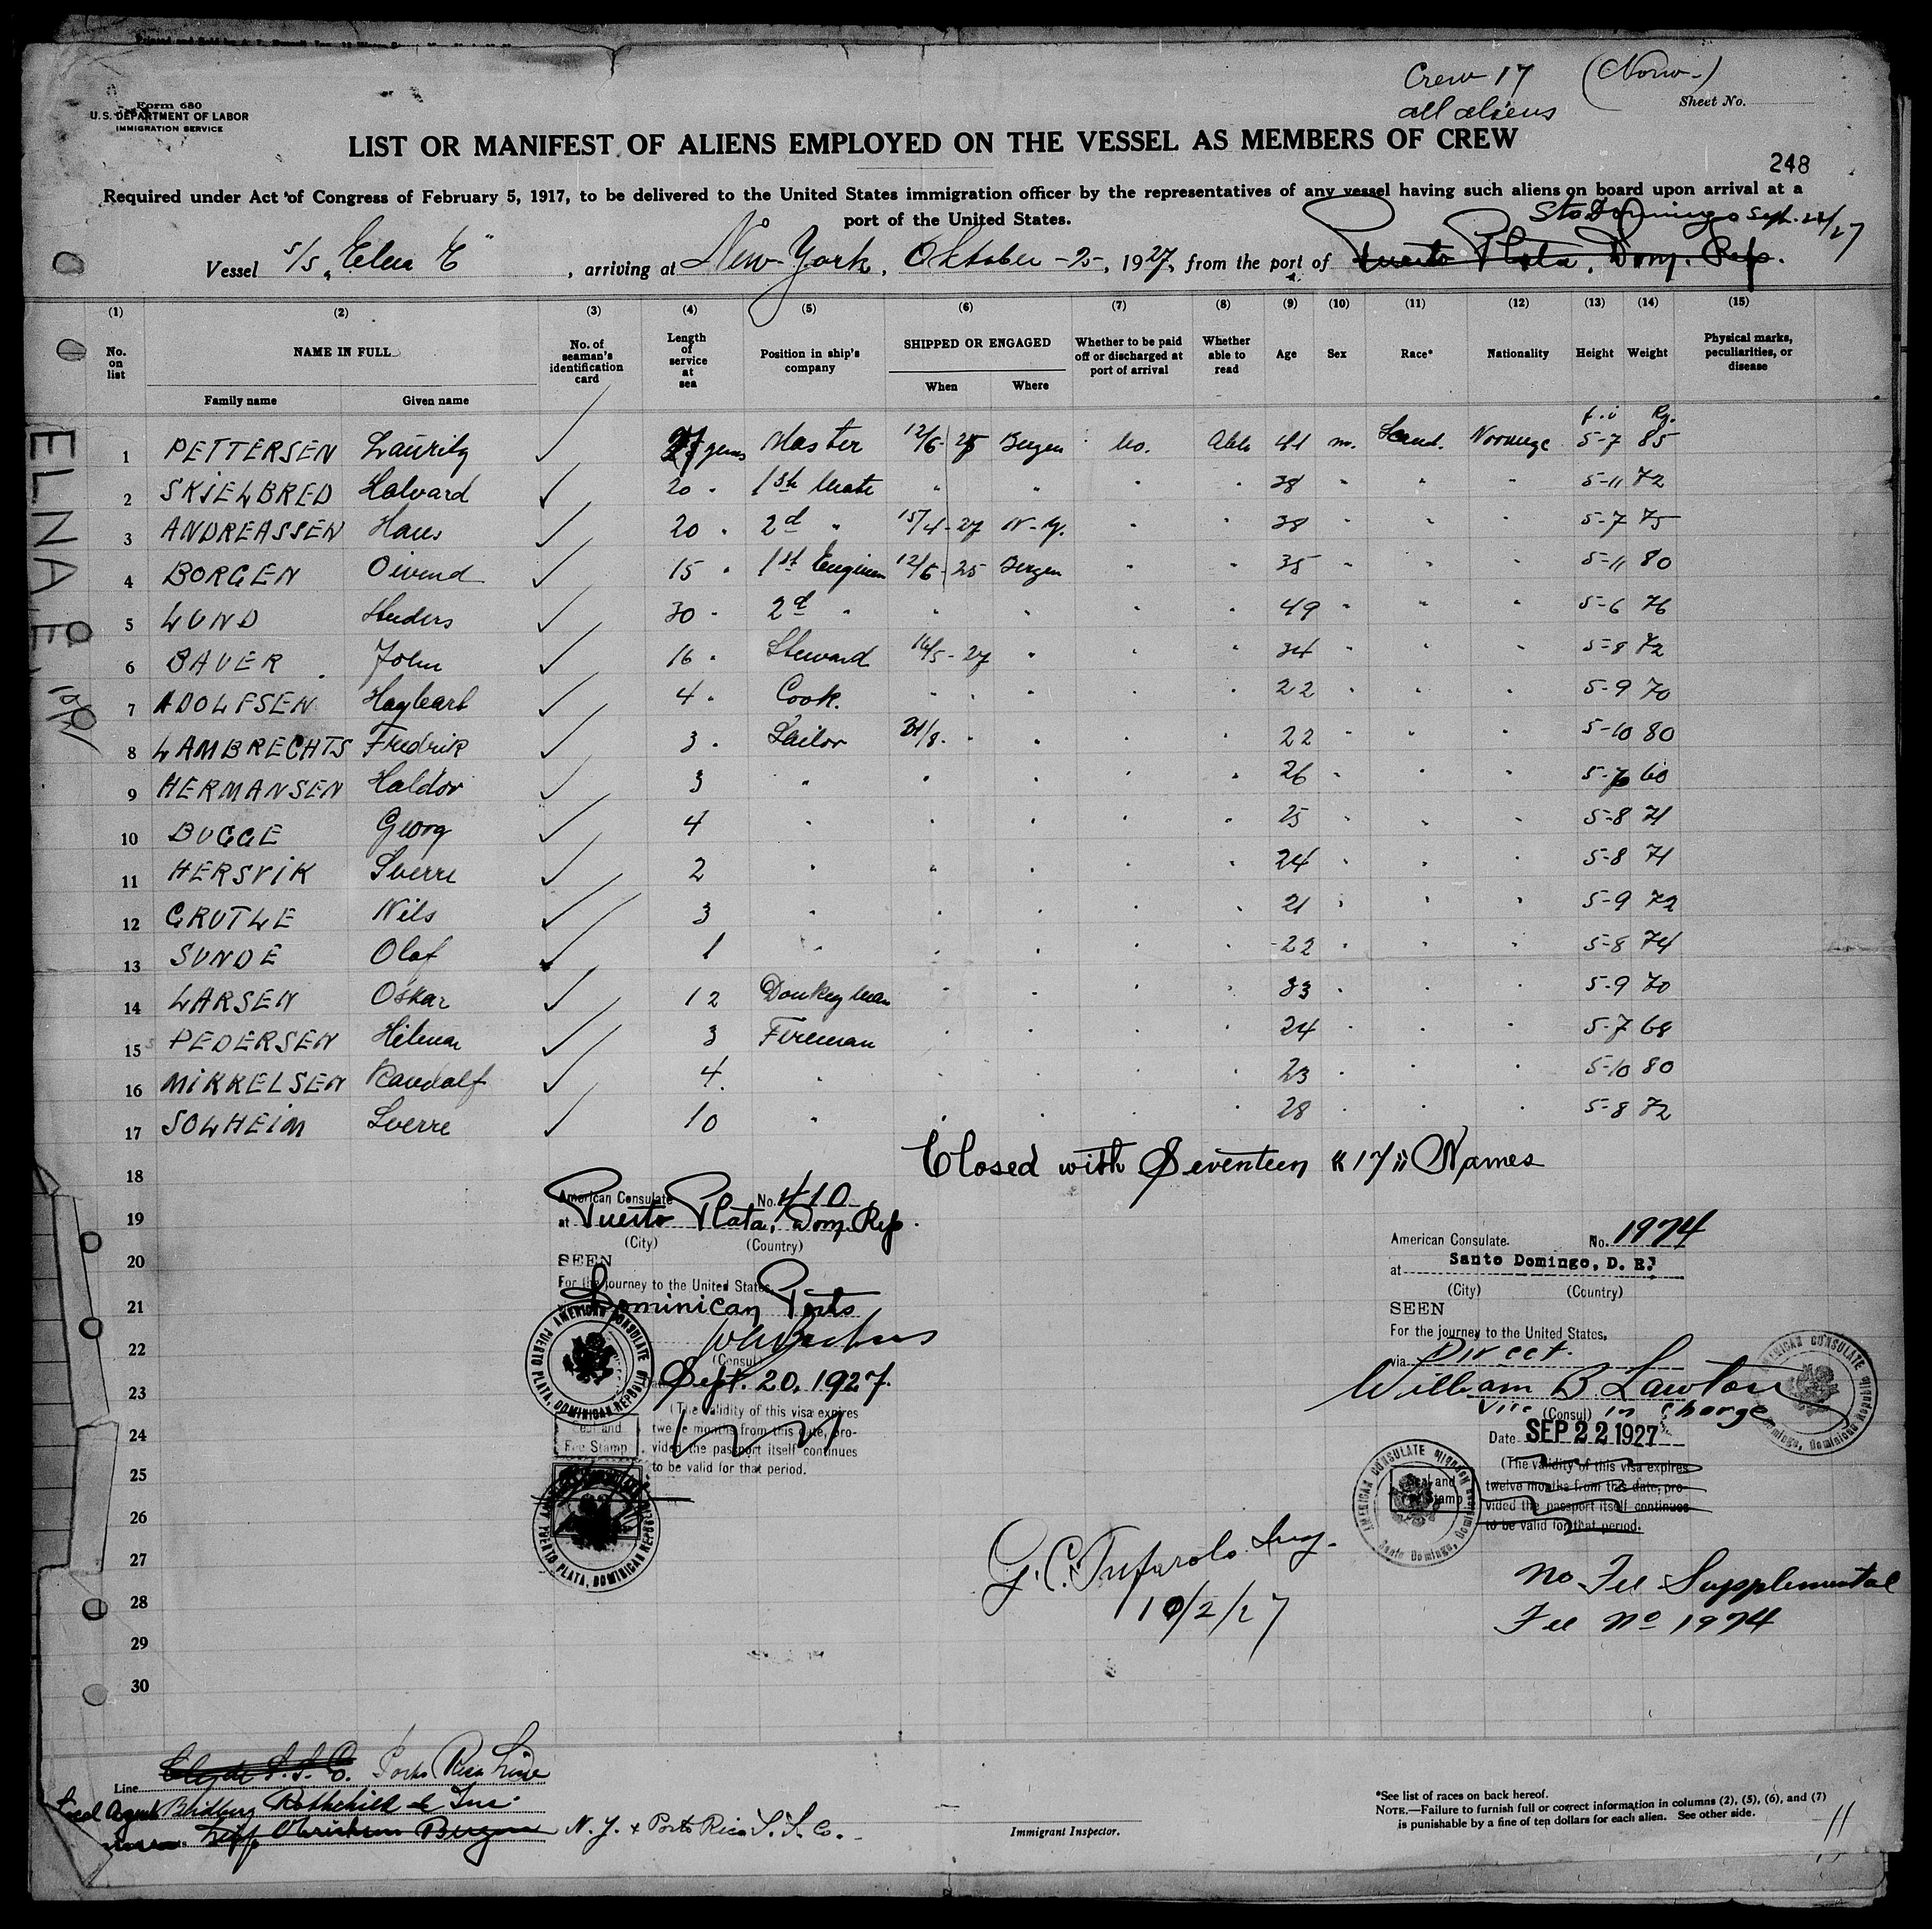 Crew 17 (Norw.)
all aliens
Sheet No.
Form 680
U.S. DEPARTMENT OF LABOR
IMMIGRATION SERVICE
LIST OR MANIFEST OF ALIENS EMPLOYED ON THE VESSEL AS MEMBERS OF CREW
248
Required under Act of Congress of February 5, 1917, to be delivered to the United States immigration officer by the representatives of any vessel having such aliens on board upon arrival at a
port of the United States.
Sto Domingo Sept. 22/27
Vessel s/s "Elna E", arriving at New-York, Oktober -2-, 1927, from the port of Puerto Plata, Dom. Rep.
(1) (2) (3) (4) (5) (6) (7) (8) (9) (10) (11) (12) (13) (14) (15)
No. on list NAME IN FULL No. of seaman's identification card Length of service at sea Position in ship's company SHIPPED OR ENGAGED Whether to be paid off or discharged at port of arrival Whether able to read Age Sex Race* Nationality Height Weight Physical marks, peculiarities, or disease
Family name Given name When Where
f. i Kg.
ELNA E
1 PETTERSEN Lauritz Master 12/6- 25 Bergen No. Able 41 m. Scand. Norwege 5-7 85
2 SKJELBRED Halvard 20 " 1st Mate " " " " 38 " " " 5-11 72
3 ANDREASSEN Hans 20 " 2d " 15/4-27 N-Y. " " 38 " " " 5-7 75
4 BORGEN Oivend 15 " 1st Engineer 12/6-25 Bergen " " 35 " " " 5-11 80
5 LUND Anders 30 " 2d " " " " " 49 " " " 5-6 76
6 BAUER John 16 " Steward 14/5-27 " " " 34 " " " 5-8 72
7 ADOLFSEN Hagbart 4 " Cook. " " " " 22 " " " 5-9 70
8 LAMBRECHTS Fredrik 3 " Sailor 31/8- " " " " 22 " " " 5-10 80
9 HERMANSEN Haldor 3 " " " " " 26 " " " 60
10 BUGGE Georg 4 " " " " " 25 " " " 5-8 71
11 HERSVIK Sverre 2 " " " " " 24 " " " 5-8 71
12 GRUTLE Nils 3 " " " " " 21 " " " 5-9 72
13 SUNDE Olaf 1 " " " " " 22 " " " 5-8 74
14 LARSEN Oskar 12 Donkeyman " " " " 33 " " " 5-9 70
15 PEDERSEN Hilmar 3 Fireman " " " " 24 " " " 5-7 68
16 MIKKELSEN Randolf 4 " " " " " 23 " " " 5-10 80
17 SOLHEIM Sverre 10 " " " " " 28 " " " 5-8 72
Closed with Seventeen "17" Names
18
19
20
21
22
23
24
25
26
27
28
29
30
American Consulate No. 410
at Puerto Plata, Dom. Rep.
(City) (Country)
SEEN
For the journey to the United States,
Dominican Ports
(Consul)
Sept. 20, 1927.
(The validity of this visa expires
twelve months from this date, pro-
vided the passport itself continues
to be valid for that period.
Seal and
Fee Stamp
AMERICAN CONSULATE PUERTO PLATA, DOMINICAN REPUBLIC
PUERTO PLATA, DOMINICAN REPUBLIC
American Consulate. No. 1974
at Santo Domingo, D. R.
(City) (Country)
SEEN
For the journey to the United States,
via Direct.
William B Lawton
Vice (Consul) in Charge
Date SEP 22 1927
(The validity of this visa expires
twelve months from this date, pro-
vided the passport itself continues
to be valid for that period.
Seal and
Stamp
AMERICAN CONSULATE Santo Domingo, Dominican Republic
AMERICAN CONSULATE Santo Domingo, Dominican Republic
No Fee Supplemental
Fee No 1974
10/2/27
Line Clyde S.S. Co. Porto Rico Line
Local Agent Rothchild Inc.
Bergen N. Y. & Porto Rico S. S. Co.
Immigrant Inspector.
*See list of races on back hereof.
NOTE.—Failure to furnish full or correct information in columns (2), (5), (6), and (7)
is punishable by a fine of ten dollars for each alien. See other side.
11